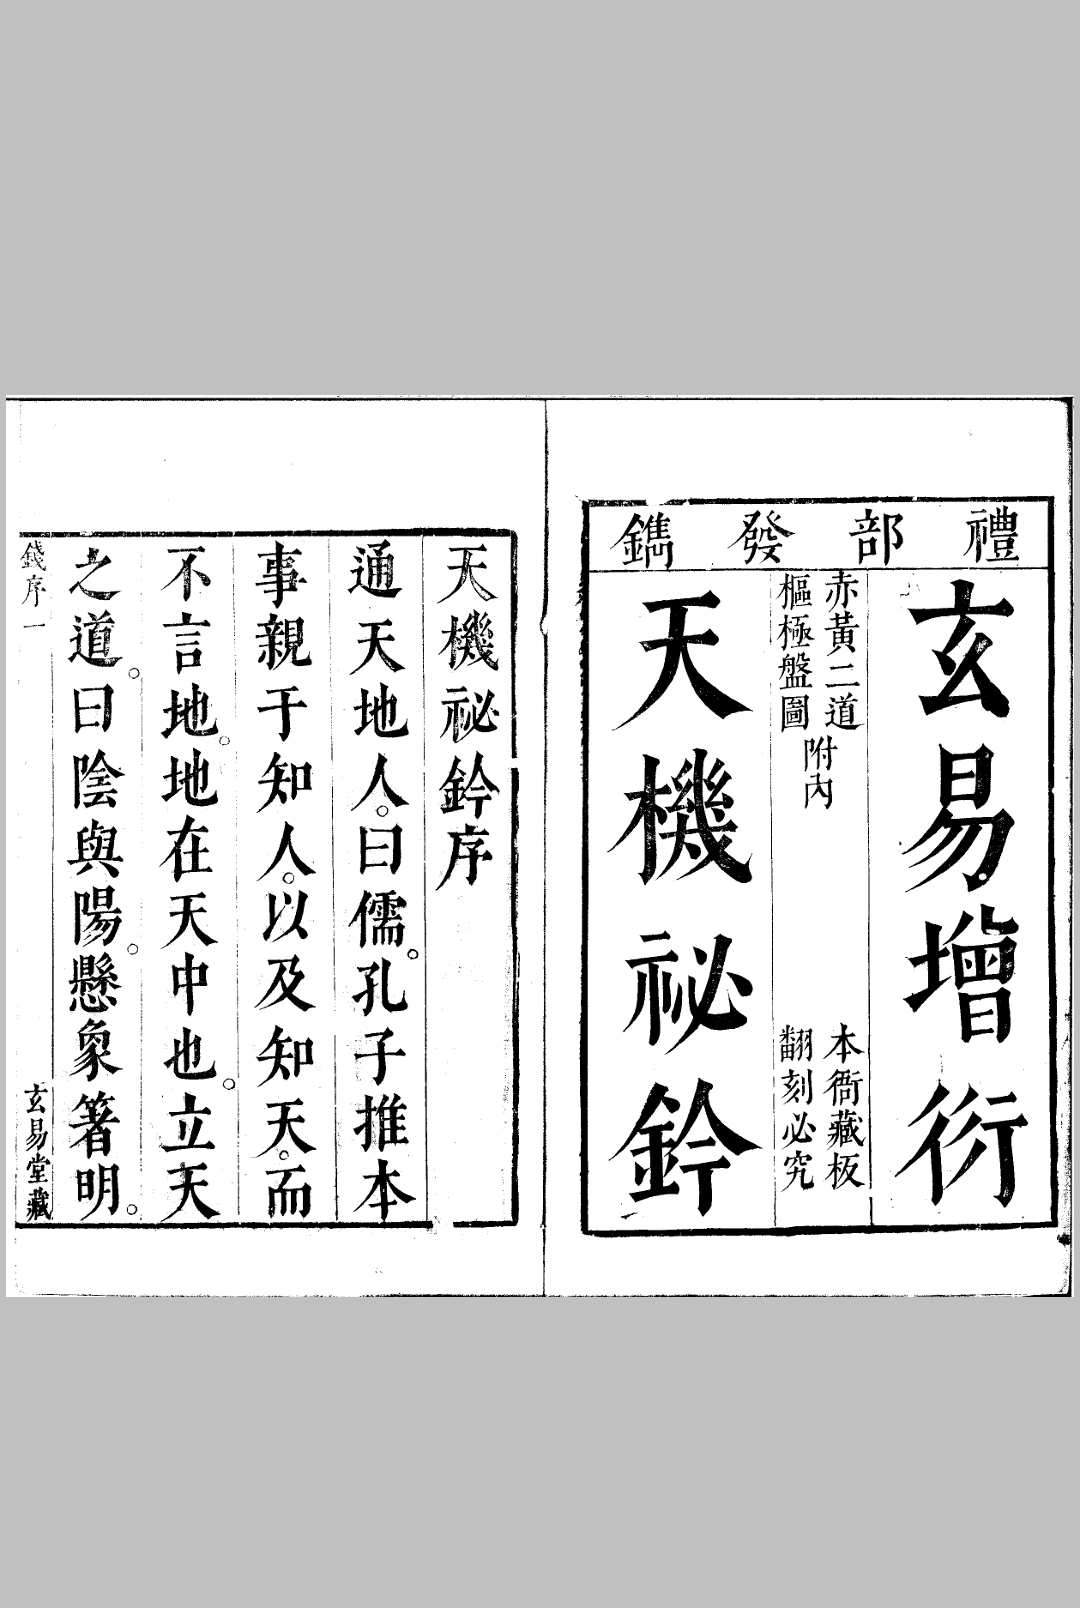 禮部發鐫
玄易增衍
赤黃二道
樞極盤圖
附內
本衙藏板
翻刻必究
天機祕鈐
天機祕鈐序
通天地人。曰儒。孔子推本
事親于知人。以及知天。而
不言地。地在天中也。立天
之道。曰陰與陽。懸象著明。
錢序一
玄易堂藏